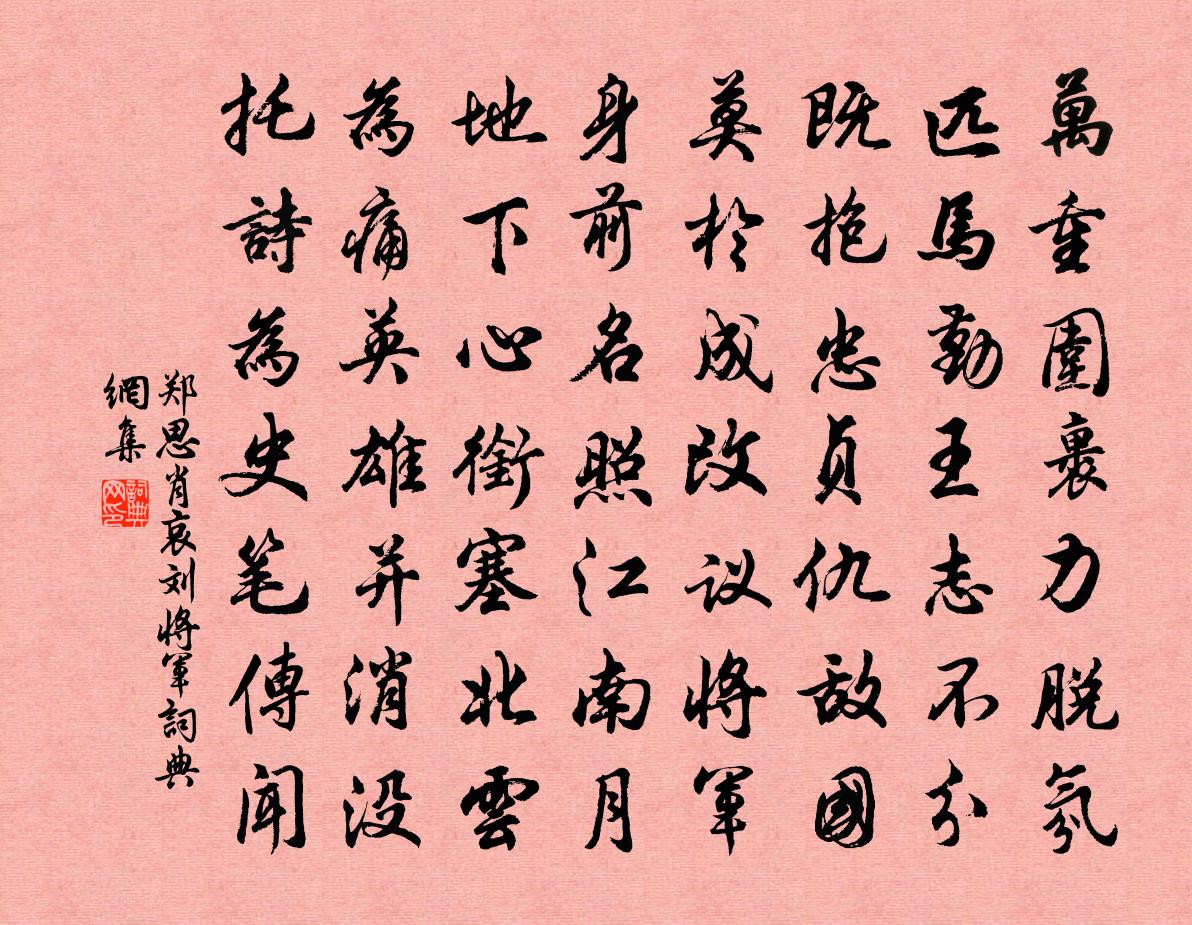 萬重圍裹力脱氛
匹馬勤王志不分
既抱忠貞仇敌國
莫於成改议將軍
身前名照江南月
地下心銜塞北雲
為痛英雄并消没
托詩為史笔傳闻
郑思肖哀刘將軍詞典
網集
詞典网印